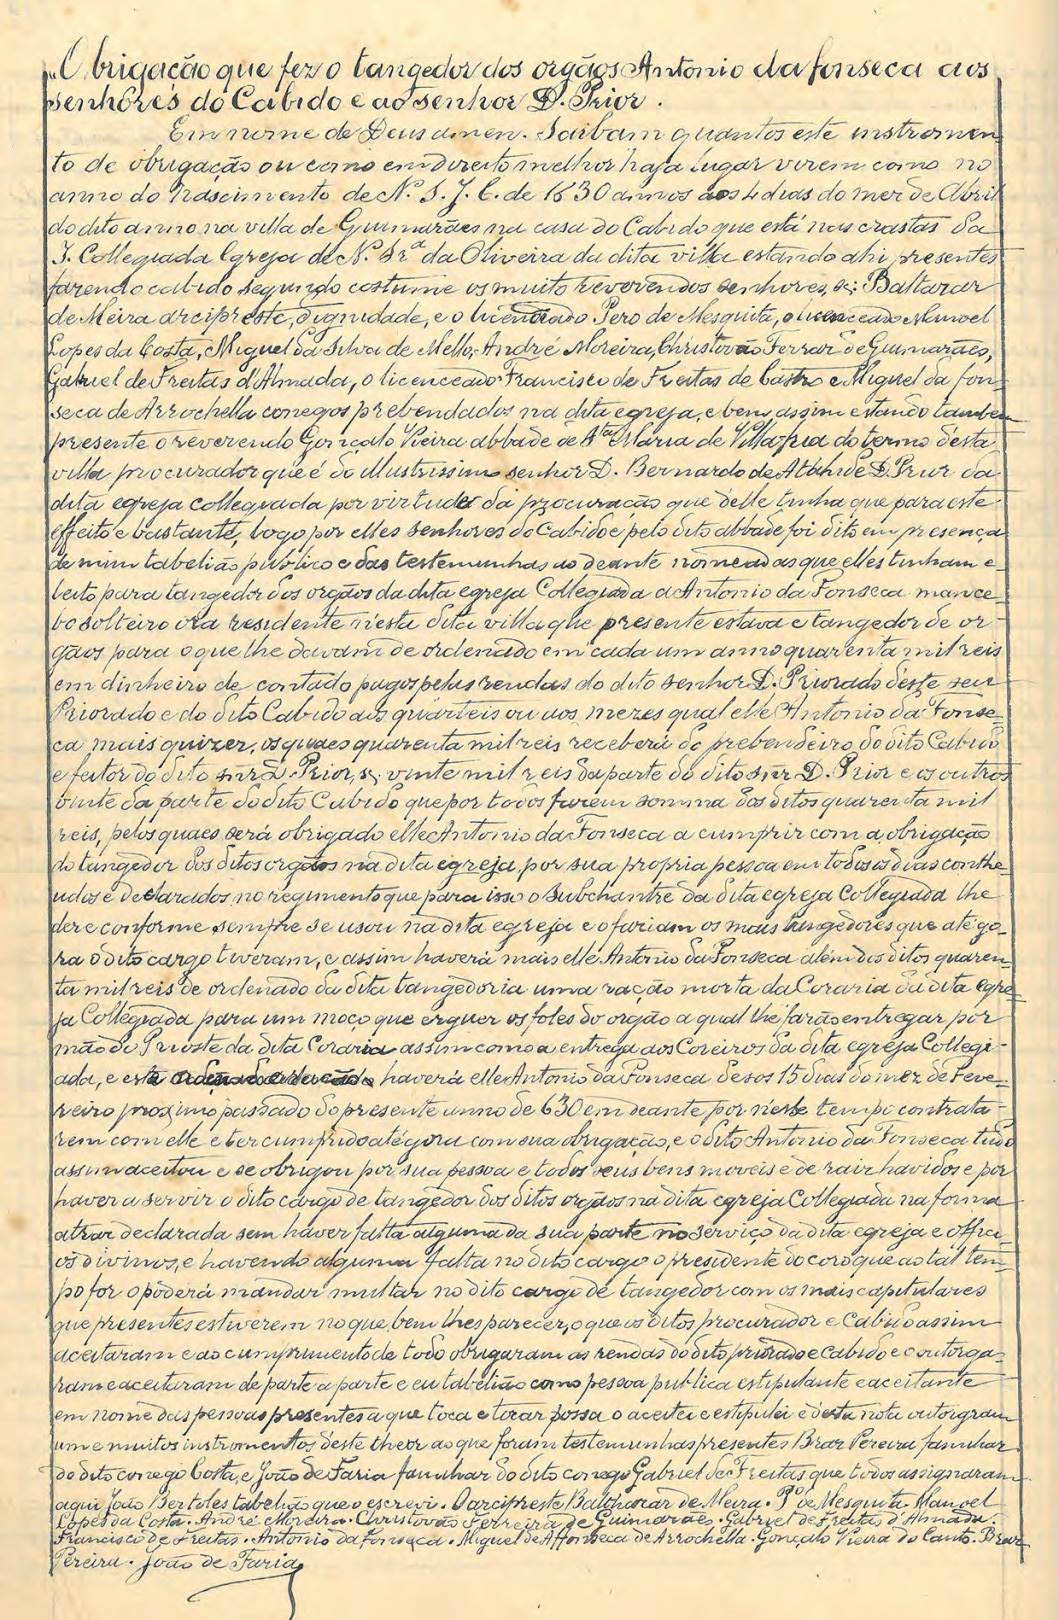 Obrigação que fez o tangedor dos orgãos Antonio da fonseca aos
senhores do Cabido e ao senhor D. Prior.
Em nome de Deus amen. Saibam quantos este instromen-
to de obrigação ou como em direito melhor haja lugar virem como no
anno do Nascimento de N. S. J. C. de 1630 annos aos 4 dias do mez de Abril
do dito anno na villa de Guimarães na casa do Cabido que está nas crastas da
I. Collegiada Egreja de N. Srª da Oliveira da dita villa estando ahi presentes
fazendo cabido segundo costume os muito reverendos senhores, sc: Baltazar
de Meira arcipreste, dignidade, e o licenceado Pero de Mesquita, o licenceado Manoel
Lopes da Costa, Miguel da Silva de Mello, André Moreira, Christovão Ferraz de Guimarães,
Gabriel de Freitas d'Almada, o licenceado Francisco de Freitas de Castro e Miguel da fon-
seca de Arrochella conegos prebendados na dita egreja, e bem assim estando tambem
presente o reverendo Gonçalo Vieira abbade de Sta Maria de Villa fria do termo d'esta
villa procurador que é do illustrissimo senhor D. Bernardo de Atahide D. Prior da
dita egreja collegiada por virtude da procuração que delle tinha que para este
effeito é bastante, logo por elles senhores do Cabido e pelo dito abbade foi dito em presença
de mim tabelião publico e das testemunhas ao deante nomeadas que elles tinham e-
leito para tangedor dos orgãos da dita egreja Collegiada a Antonio da Fonseca mance-
bo solteiro ora residente n'esta dita villa que presente estava e tangedor de or-
gãos para o que lhe davam de ordenado em cada um anno quarenta mil reis
em dinheiro de contado pagos pelas rendas do dito senhor D. Priorado d'este seu
Priorado e do dito Cabido aos quarteis ou aos mezes qual elle Antonio da Fonse-
ca mais quizer, os quaes quarenta mil reis receberá do prebendeiro do dito Cabido
e feitor do dito snr D. Prior, sc. vinte mil reis da parte do dito snr D. Prior e os outros
vinte da parte do dito Cabido que por todos fazem somma dos ditos quarenta mil
reis, pelos quaes será obrigado elle Antonio da Fonseca a cumprir com a obrigação
do tangedor dos ditos orgãos na dita egreja, por sua propria pessoa em todos os dias conthe-
udos e declarados no regimento que para isso o Subchantre da dita egreja Collegiada lhe
der e conforme sempre se usou na dita egreja e o faziam os mais tangedores que até go-
ra o dito cargo tiveram, e assim haverá mais elle Antonio da Fonseca alem dos ditos quaren-
ta mil reis de ordenado da dita tangedoria uma ração morta da Coraria da dita egre-
ja Collegiada para um moço que erguer os foles do orgão a qual lhe farão entregar por
mão do Prioste da dita Coraria assim como a entrega aos Coreiros da dita egreja Collegi-
ada, e haverá elle Antonio da Fonseca desos 15 dias do mez de Feve-
reiro proximo passado do presente anno de 630 em deante por n'este tempo contrata-
rem com elle e ter cumprido até gora com sua obrigação, e o dito Antonio da Fonseca tudo
assim aceitou e se obrigou por sua pessoa e todos seus bens moveis e de raiz havidos e por
haver a servir o dito cargo de tangedor dos ditos orgãos na dita egreja Collegiada na forma
atraz declarada sem haver falta alguma da sua parte no serviço da dita egreja e offici-
os divinos, e havendo alguma falta no dito cargo o presidente do coro que ao tal tem-
po for o poderá mandar multar no dito cargo de tangedor com os mais capitulares
que presentes estiverem no que bem lhes parecer, o que os ditos procurador e Cabido assim
aceitaram e ao cumprimento de todo obrigaram as rendas do dito priorado e cabido e o outorga-
ram e aceitaram de parte a parte e eu tabelião como pessoa publica estipulante e aceitante
em nome das pessoas presentes a que toca e tocar possa o aceitei e estipulei e d'esta nota outorgram
um e muitos instromentos d'este theor ao que foram testemunhas presentes Braz Pereira familiar
do dito conego Costa, e João de Faria familiar do dito conego Gabriel de Freitas que todos assignaram
aqui João Bertoles tabelião que o escrevi. O arcipreste Balthazar de Meira. Pº de Mesquita. Manoel
Lopes da Costa. André Moreira. Christovão Ferreira de Guimarães. Gabriel de Freitas d'Almada.
Francisco de Freitas. Antonio da Fonseca. Miguel de Affonseca de Arrochella. Gonçalo Vieira do Canto. Braz
Pereira. João de Faria